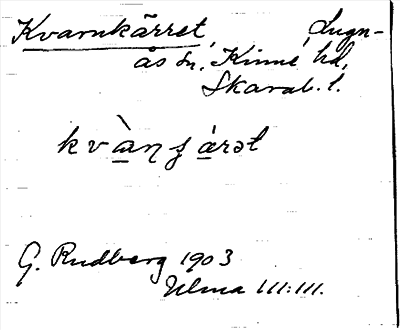 Kvarnkärret, Lugn-
ås sn, Kinne hd,
Skarab. l.
kvàṉʃärət
G. Rudberg 1903
Ulma 111:111.